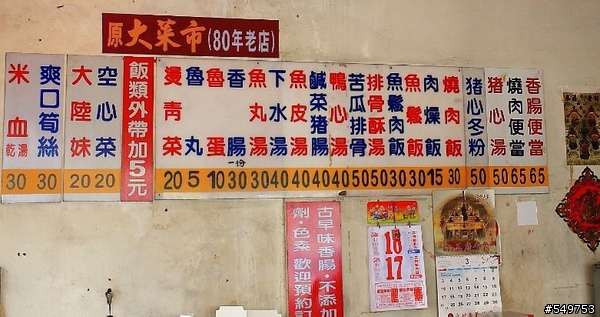 原大菜市(80年老店)
米血乾湯 30
爽口筍絲 30
大陸妹 20
空心菜 20
飯類外帶加5元
燙青菜 20
魯丸 5
魯蛋 10
香腸 一份 30
魚丸湯 30
下水湯 40
魚皮湯 40
鹹菜豬腸湯 40
鴨心湯 40
苦瓜排骨 50
排骨酥湯 50
魚鬆肉飯 30
魚鬆飯 30
肉燥飯 15
燒肉飯 30
豬心冬粉 50
豬心湯 50
燒肉便當 65
香腸便當 65
古早味香腸·不添加
劑·色素 歡迎預約訂
18
17
2015
3
#549753